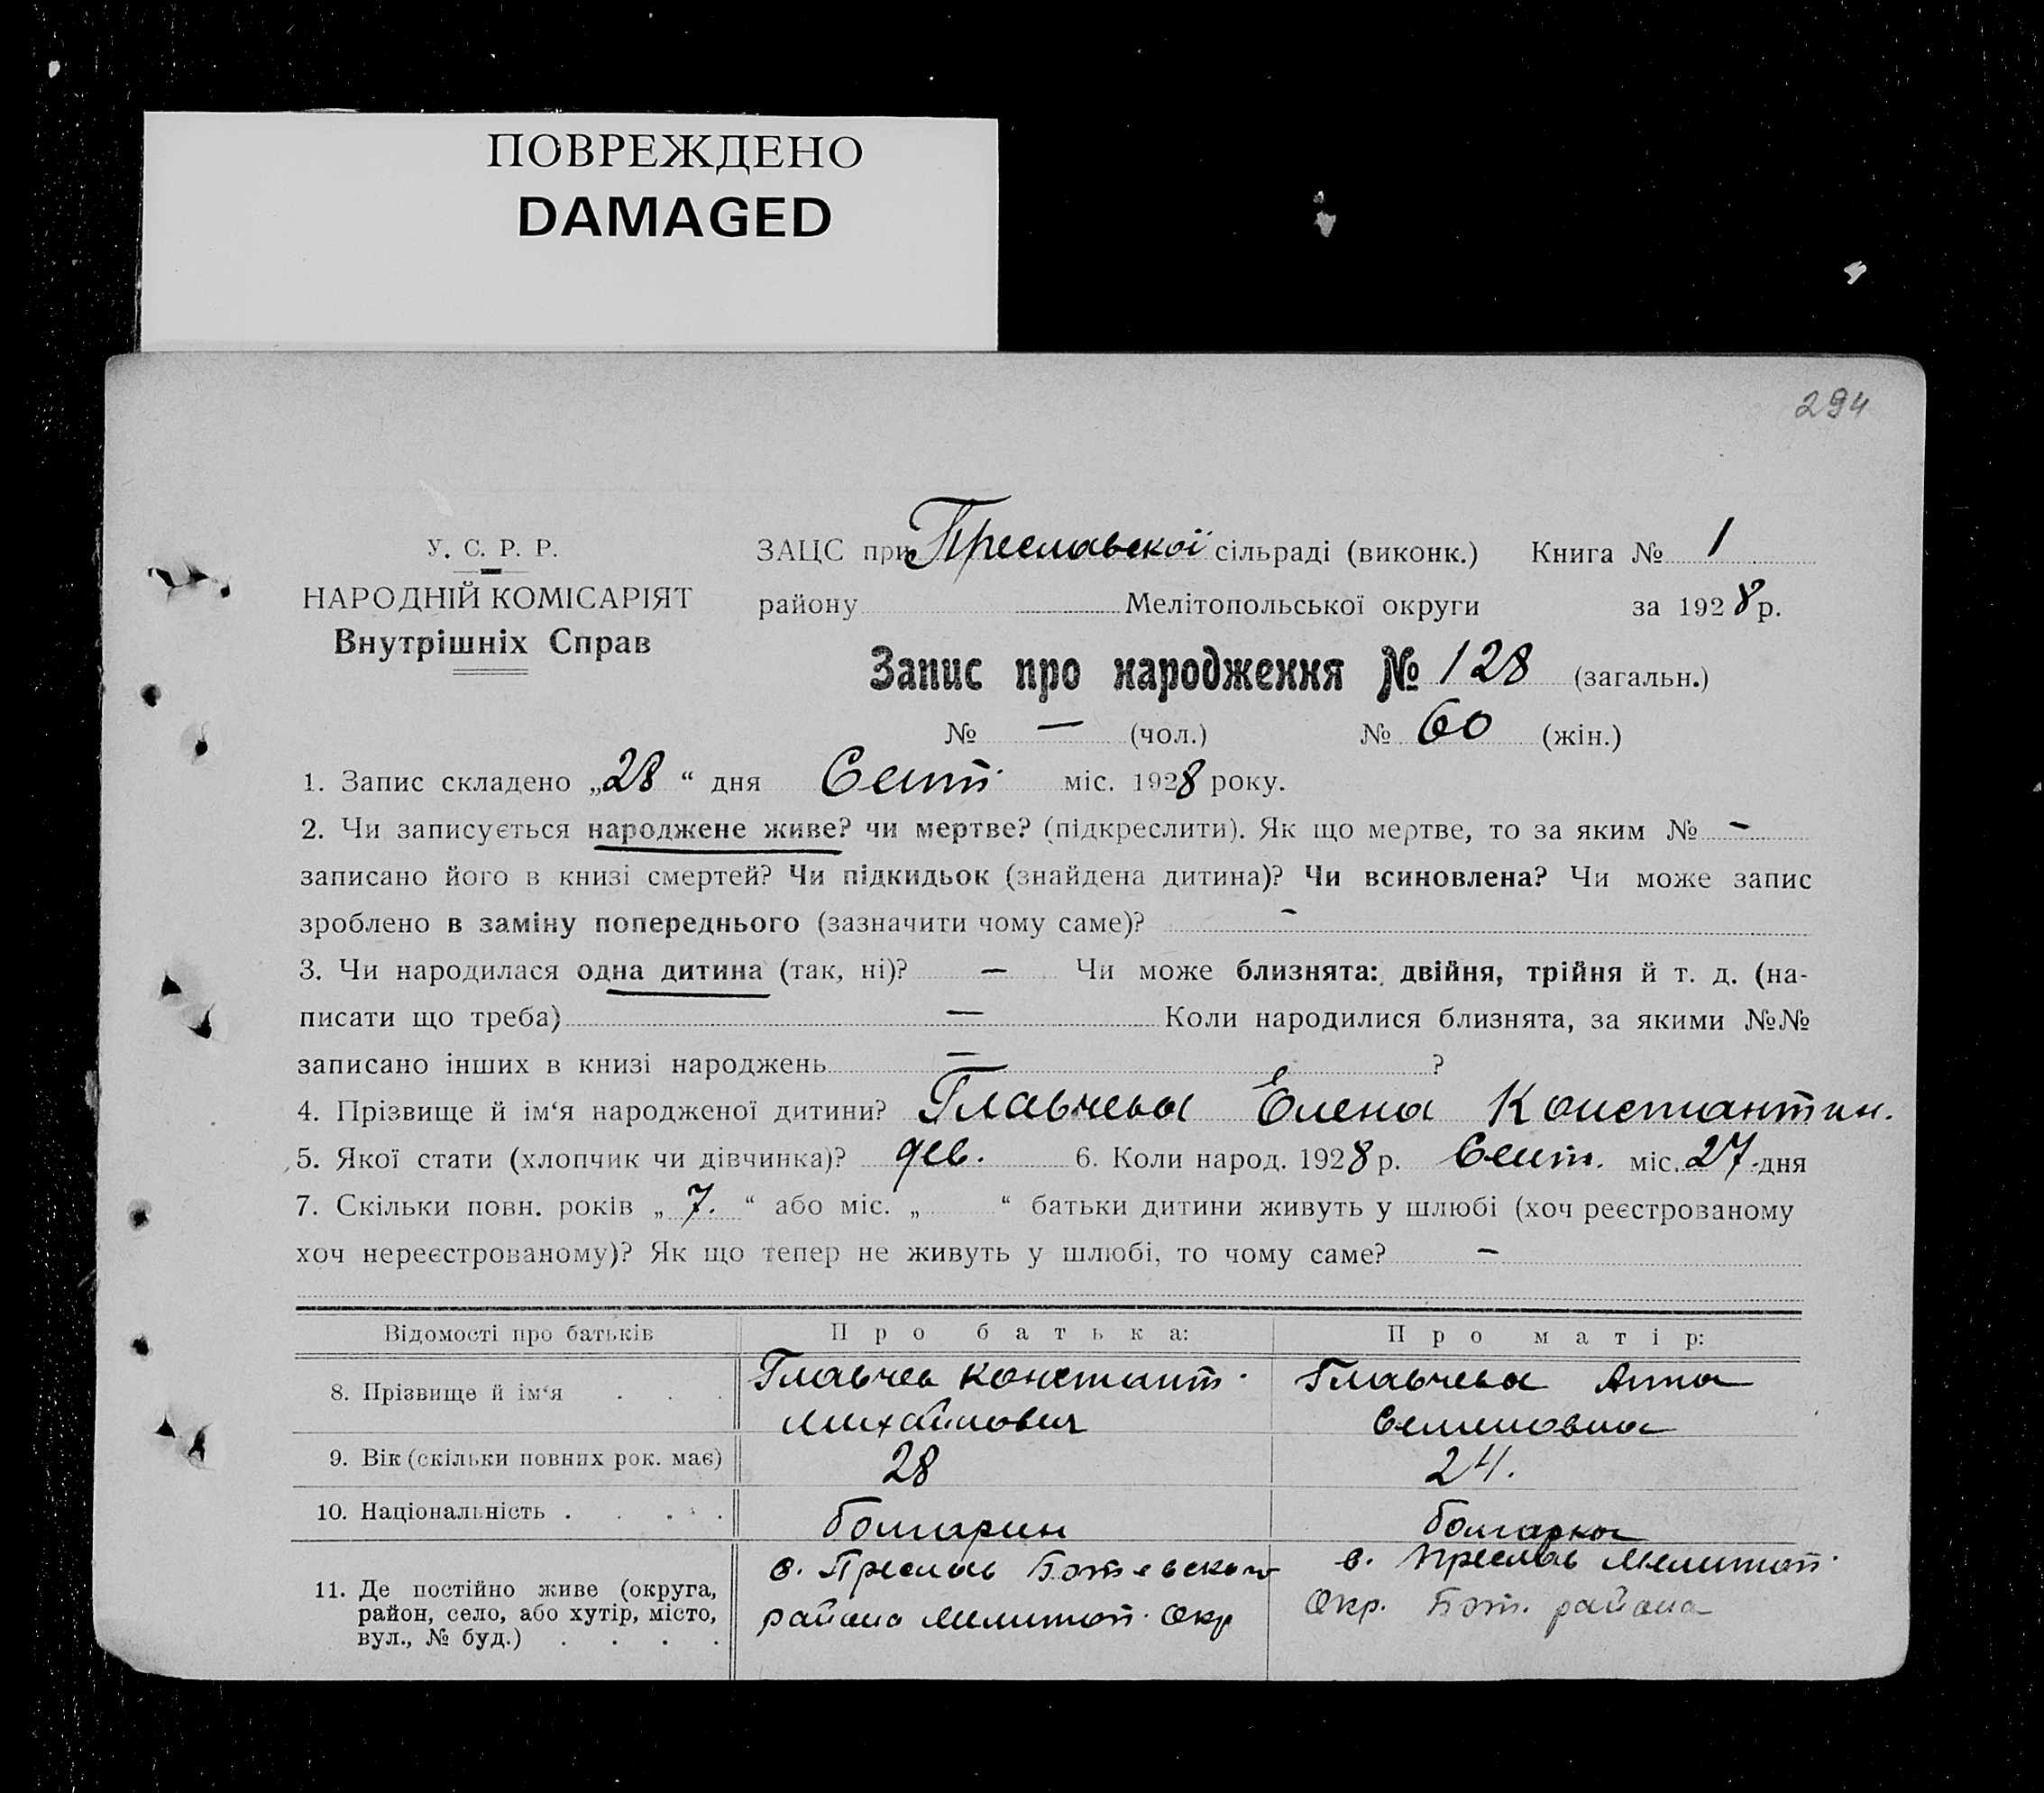 ПОВРЕЖДЕНО
DAMAGED
294
У. С. Р. Р.
НАРОДНІЙ КОМІСАРІЯТ
Внутрішніх Справ
ЗАЦС при Преславской сільраді (виконк.) Книга № 1
району Мелітопольської округи за 1928 р.
Запис про народження № 128 (загальн.)
№ — (чол.) № 60 (жін.)
1. Запис складено „28“ дня Сент. міс. 1928 року.
2. Чи записується народжене живе? чи мертве? (підкреслити). Як що мертве, то за яким № –
записано його в книзі смертей? Чи підкидьок (знайдена дитина)? Чи всиновлена? Чи може запис
зроблено в заміну попереднього (зазначити чому саме)? –
3. Чи народилася одна дитина (так, ні)? — Чи може близнята: двійня, трійня й т. д. (на-
писати що треба) — Коли народилися близнята, за якими №№
записано інших в книзі народжень — ?
4. Прізвище й ім‘я народженої дитини? Главчева Елена Константин.
5. Якої стати (хлопчик чи дівчинка)? дев. 6. Коли народ. 1928 р. Сент. міс. 27 дня
7. Скільки повн. років „7.“ або міс. „ “ батьки дитини живуть у шлюбі (хоч реєстрованому
хоч нереєстрованому)? Як що тепер не живуть у шлюбі, то чому саме? –
Відомості про батьків Про батька: Про матір:
8. Прізвище й ім‘я . . . Главчев Констант. Главчева Анна
Михайлович Семеновна
9. Вік (скільки повних рок. має) 28 24.
10. Національність . . . . . болгарин болгарка
11. Де постійно живе (округа, район, село, або хутір, місто, вул., № буд.) . . . . с. Преслав Ботевского с. Преслав Мелитоп.
района Мелитоп. Окр Окр. Бот. района